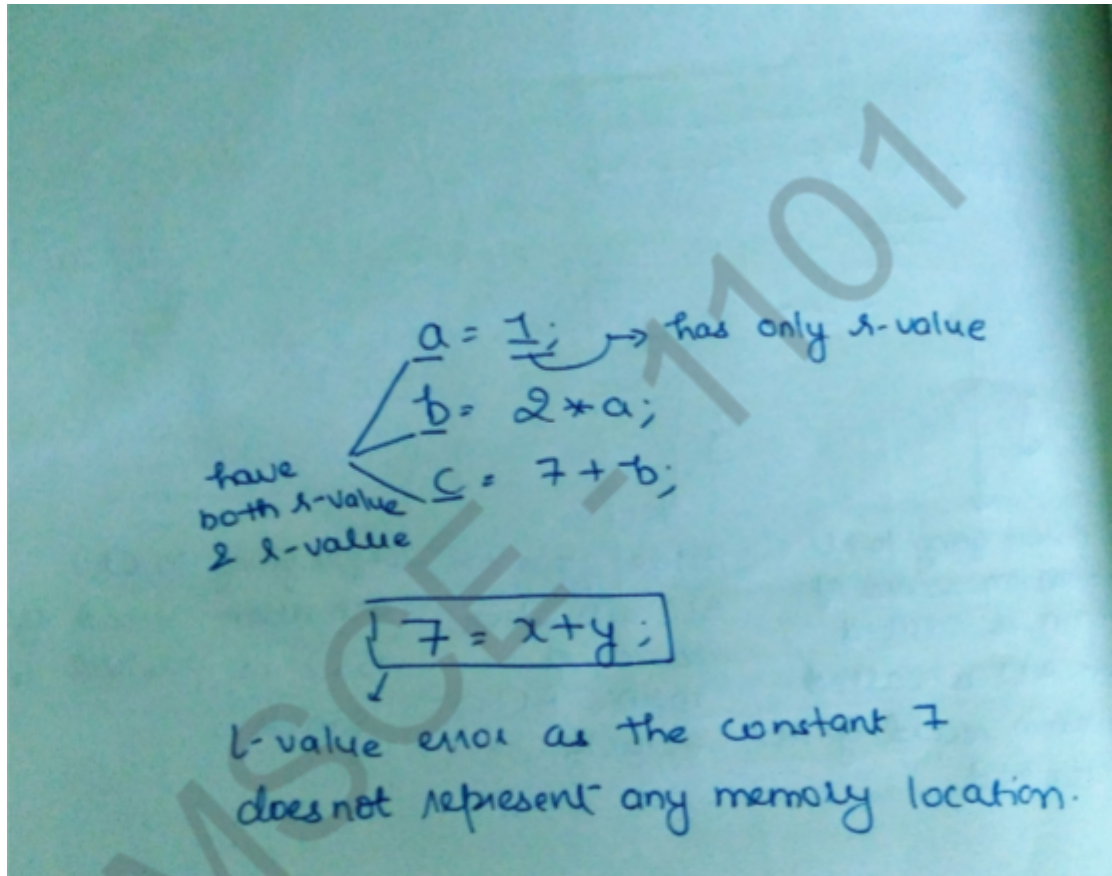 a = 1; → has only r-value
b = 2*a;
c = 7+b;
have
both r-value
& l-value
7 = x+y;
l-value error as the constant 7
does not represent any memory location.
MSCE - 1101